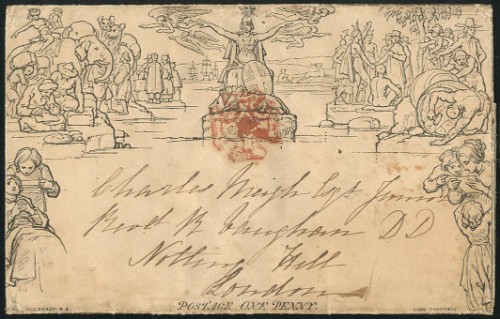 Charles Meigh Esqr Junr
Revd R Vaughan DD
Notting Hill
London
POSTAGE ONE PENNY.
MULREADY, R.A.
JOHN THOMPSON